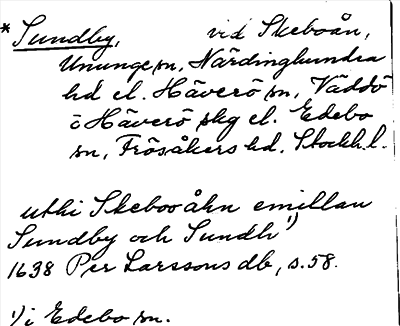 * Sundby, vid Skeboån,
Ununge sn, Närdinghundra
hd el. Häverö sn, Väddö
o Häverö skg el. Edebo
sn, Frösåkers hd. Stockh. l.
uthi Skebooåhn emillan
Sundby och Sundh 1)
1638 Per Larssons db, s. 58.
1) i Edebo sn.